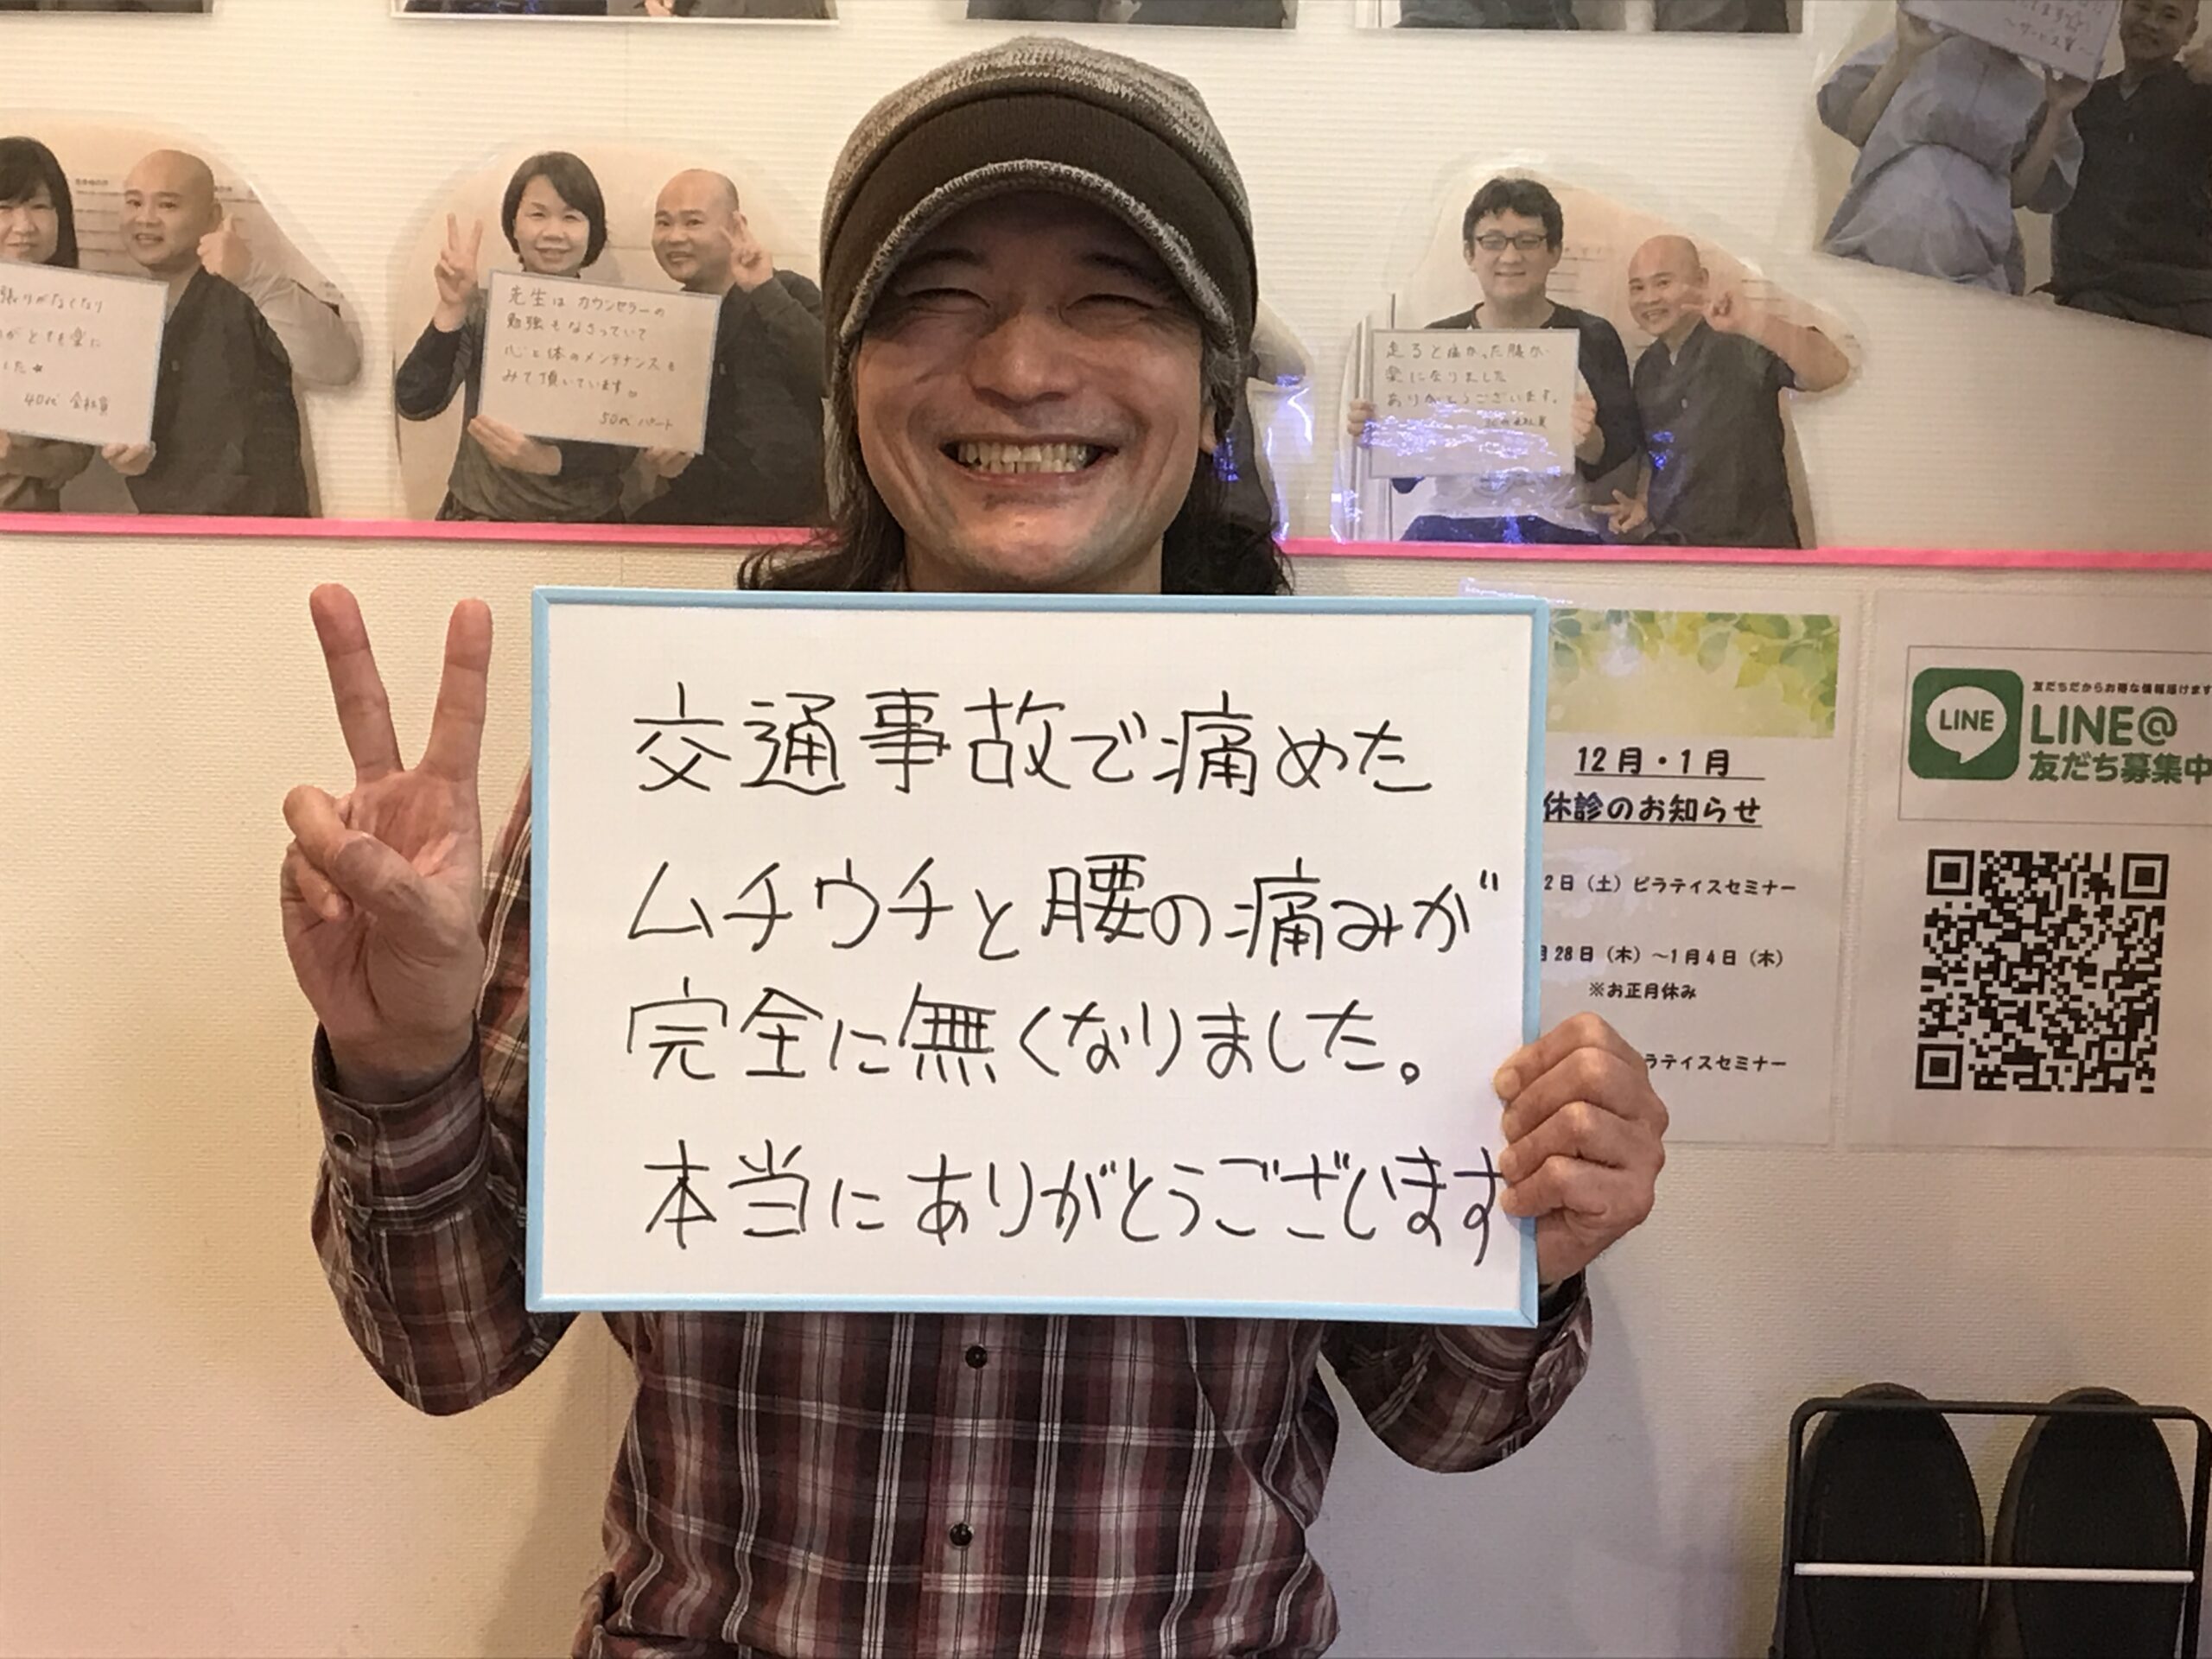 ます☆
〜サービス業〜
張りがなくなり
がとても楽に
した
40代 会社員
先生は カウンセラーの
勉強もなさっていて
心と体のメンテナンスも
みて頂いています。
50代 パート
走ると痛かった膝が
楽になりました
ありがとうございます。
交通事故で痛めた
ムチウチと腰の痛みが
完全に無くなりました。
本当にありがとうございます
12月・1月
休診のお知らせ
2日（土）ピラティスセミナー
月28日（木）～1月4日（木）
※お正月休み
ラティスセミナー
友だちだからお得な情報届けます
LINE
LINE@
友だち募集中